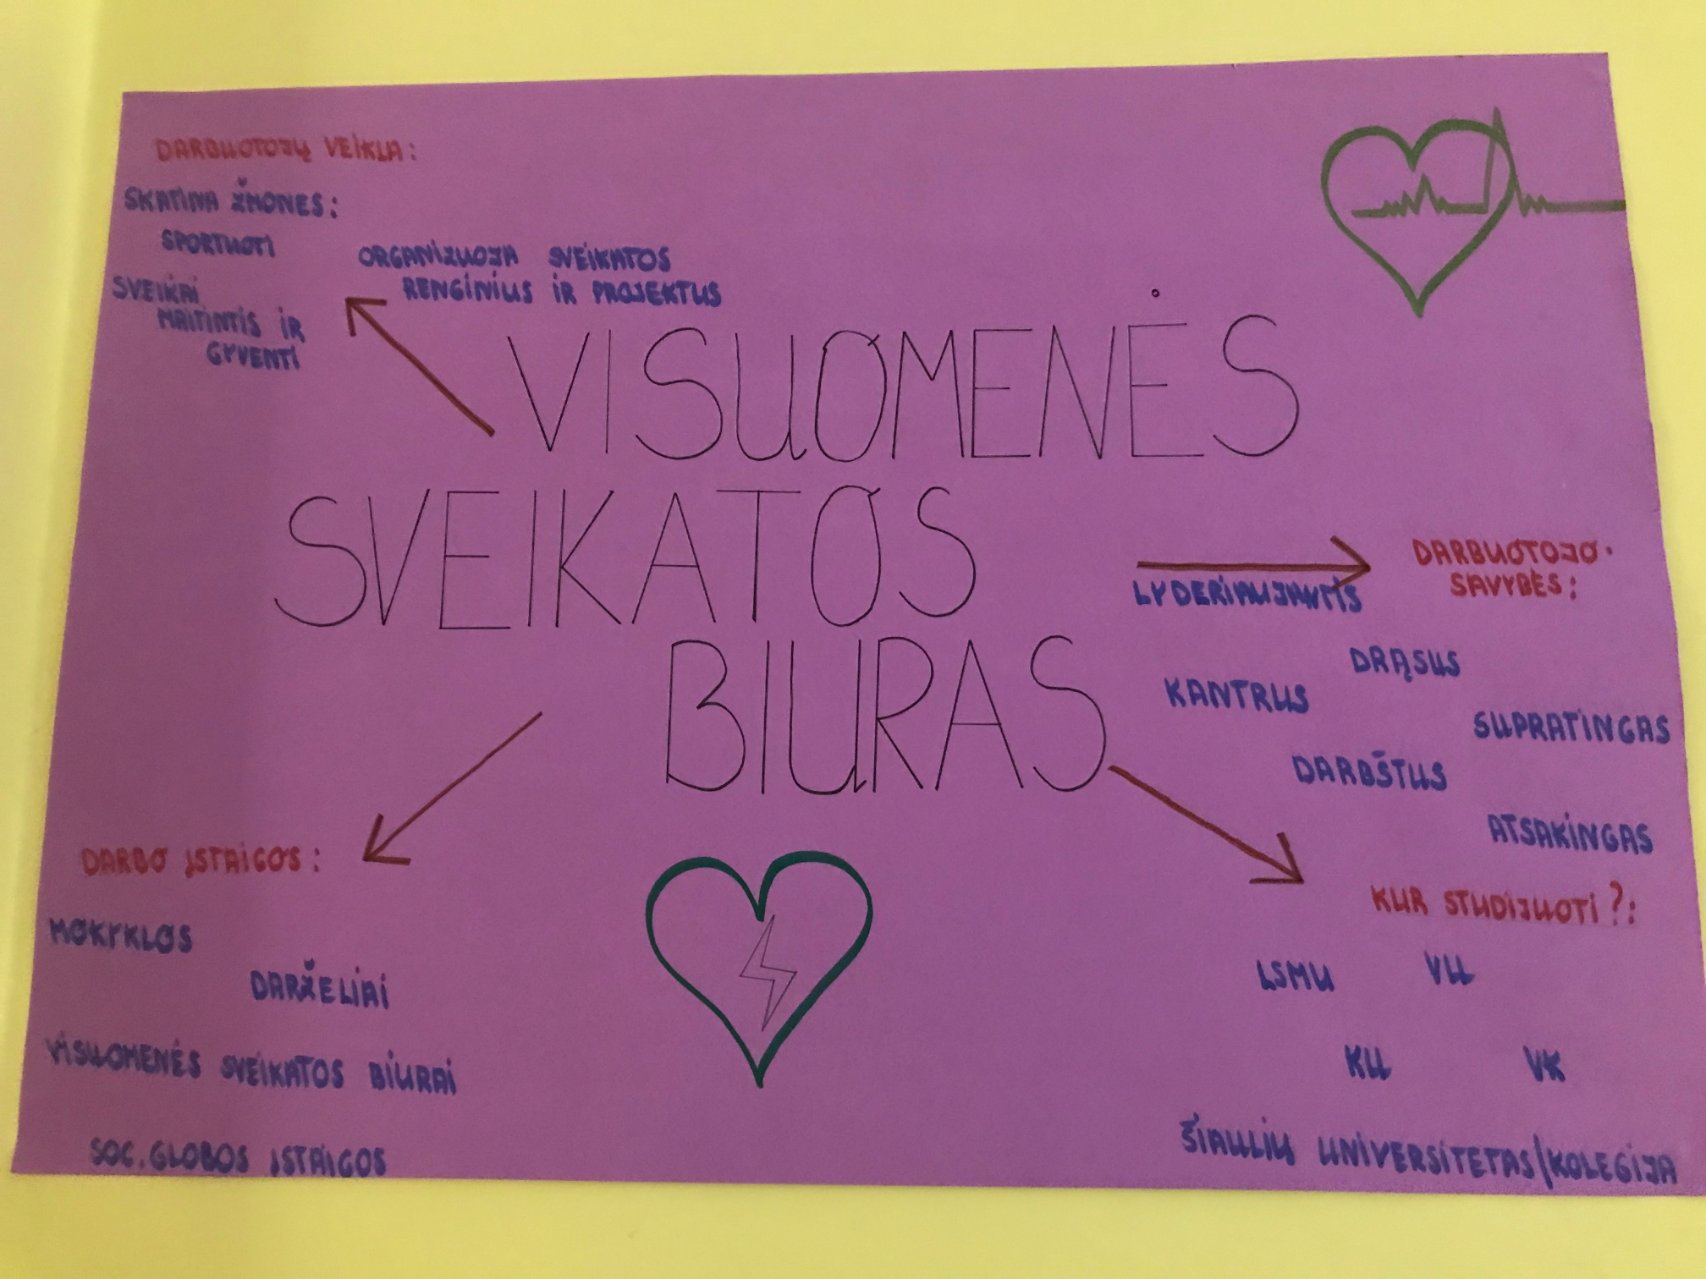 DARBUOTOJŲ VEIKLA:
SKATINA ŽMONES:
SPORTUOTI
SVEIKAI
MAITINTIS IR
GYVENTI
ORGANIZUOJA SVEIKATOS
RENGINIUS IR PROJEKTUS
VISUOMENĖS
SVEIKATOS
BIURAS
DARBUOTOJO
SAVYBĖS:
LYDERIAUJANTIS
DRĄSUS
KANTRUS
SUPRATINGAS
DARBŠTUS
ATSAKINGAS
DARBO ĮSTAIGOS:
MOKYKLOS
DARŽELIAI
VISUOMENĖS SVEIKATOS BIURAI
SOC. GLOBOS ĮSTAIGOS
KUR STUDIJUOTI?:
LSMU VU
KU VK
ŠIAULIŲ UNIVERSITETAS/KOLEGIJA